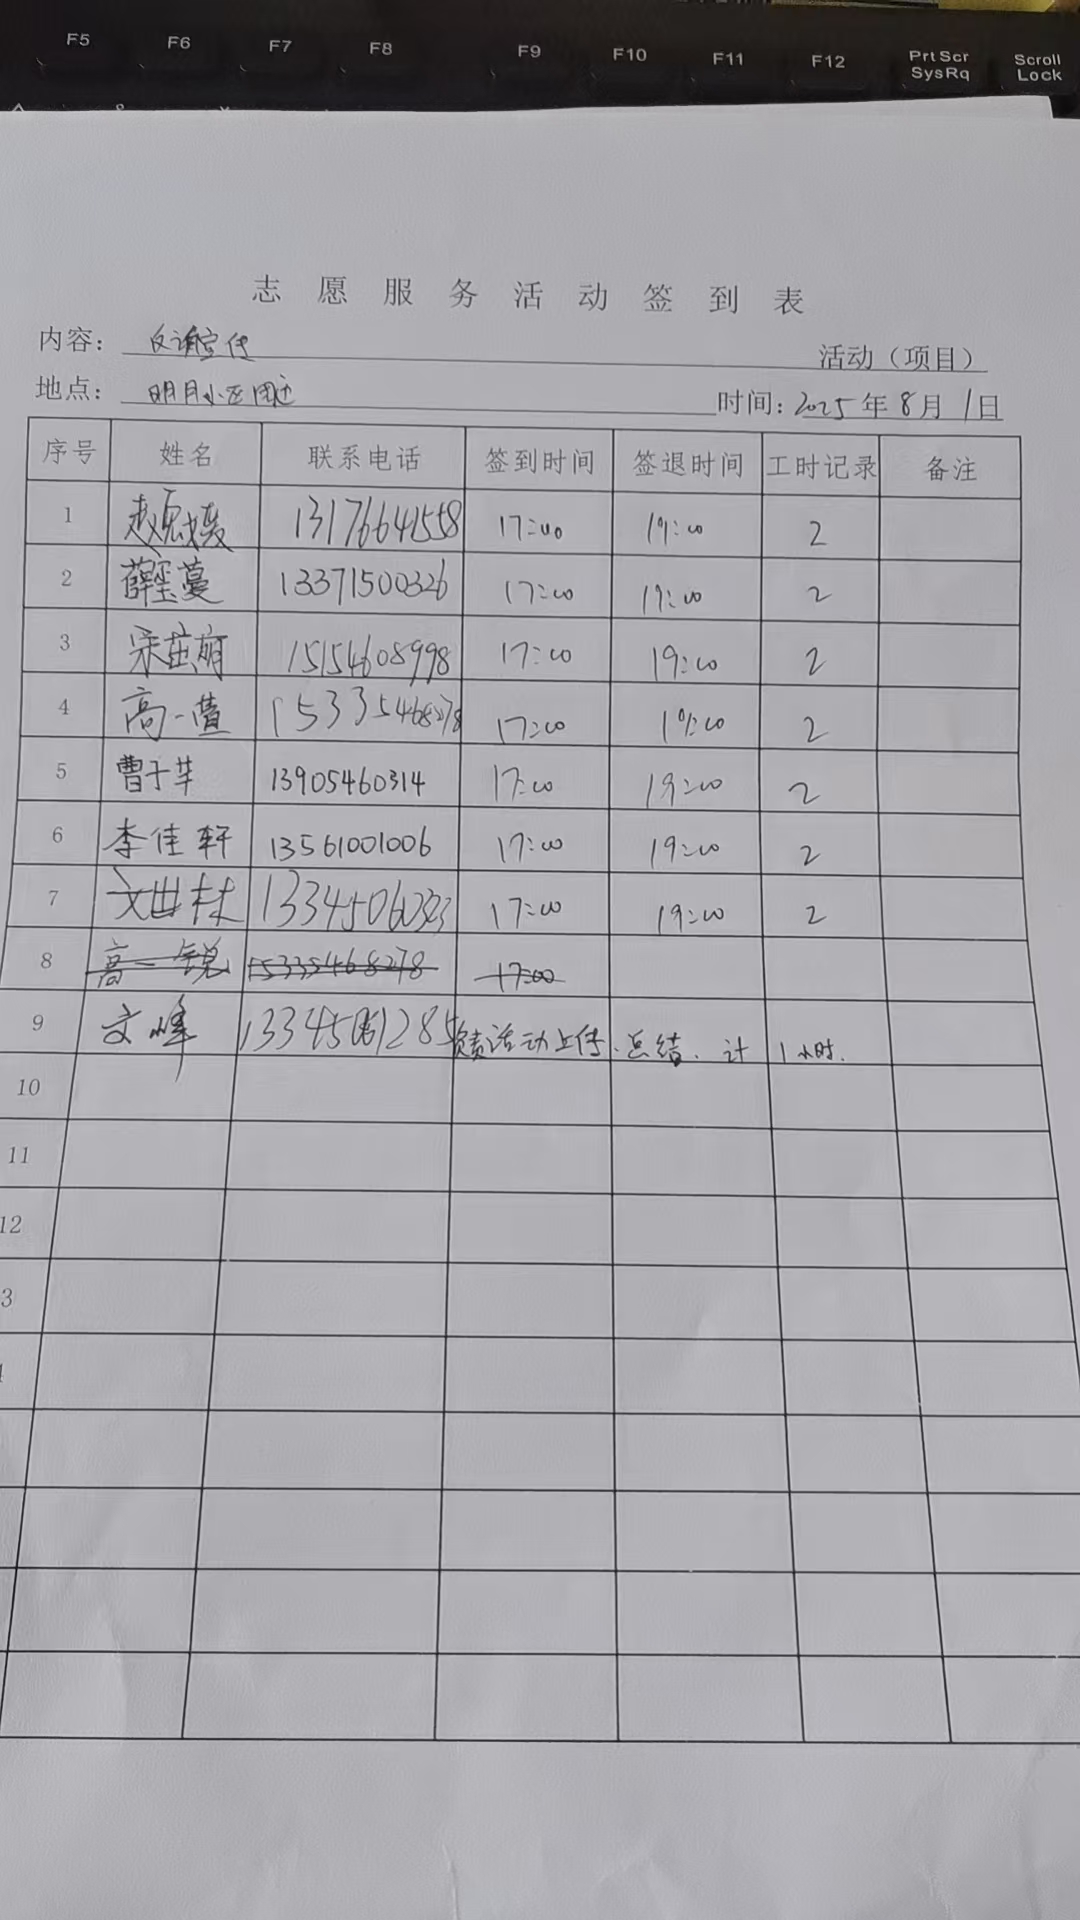 F5 F6 F7 F8 F9 F10 F11 F12 PrtScr SysRq Scroll Lock
志愿服务活动签到表
内容：反诈宣传 活动（项目）
地点：明月小区周边 时间：2025年8月1日
序号 姓名 联系电话 签到时间 签退时间 工时记录 备注
1 赵 13176641558 17:00 19:00 2
2 薛玺蔓 13371500326 17:00 19:00 2
3 宋茁萌 15154608998 17:00 19:00 2
4 高一萱 15335468278 17:00 19:00 2
5 曹于芊 13905460314 17:00 19:00 2
6 李佳轩 13561001006 17:00 19:00 2
7 文世林 17:00 19:00 2
8 高一锐 15335468278 17:00
9 文峰 负责活动上传、总结、计1小时.
10
11
12
3